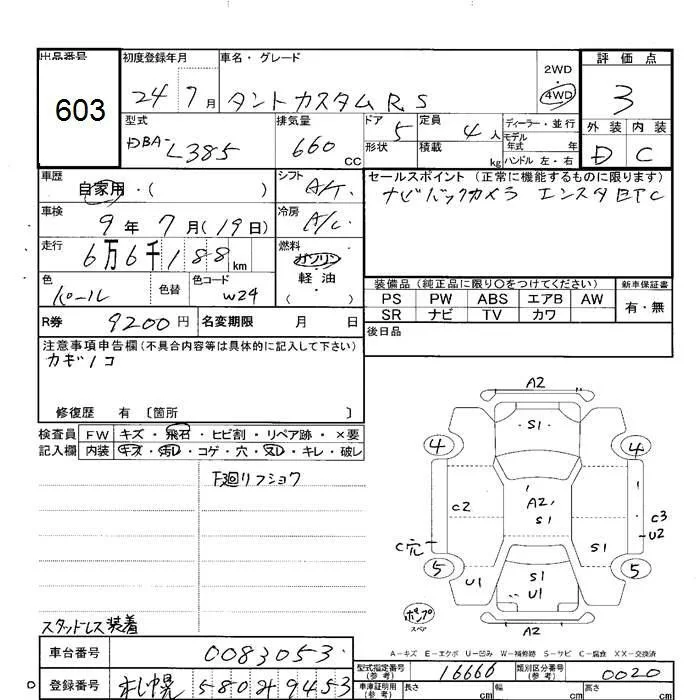 出品番号 初度登録年月 車名・グレード 2WD 評価点
603 24 7月 タントカスタムRS 4WD 3
型式 排気量 ドア 定員 ディーラー・並行 外装 内装
DBA-L385 660cc 5 4人 モデル年式 年 D C
形状 積載 kg ハンドル 左・右
車歴 自家用・( ) シフト A/T セールスポイント (正常に機能するものに限ります)
ナビ バックカメラ エンスタ ETC
車検 9年7月(19日) 冷房 A/C
走行 6万6千188km 燃料 ガソリン・軽油 ( )
色 パール 色替 色コード W24
装備品 (純正品に限り○をつけてください) 新車保証書
PS PW ABS エアB AW 有・無
SR ナビ TV カワ
R券 9200円 名変期限 月 日 後日品
注意事項申告欄(不具合内容等は具体的に記入して下さい)
カギ1コ
修復歴 有 〔箇所 〕
検査員 FW キズ・飛石・ヒビ割・リペア跡・×要
記入欄 内装 キズ・汚レ・コゲ・穴・スレ・キレ・破レ
下廻リフショク
A2
S1
4 4
A2
S1
C2 C3
U2
C穴 S1
5 5
U1 S1
U1
ポンプ
スペア
A2
A-キズ E-エクボ U-凹み W-補修跡 S-サビ C-腐食 XX-交換済
スタッドレス装着
車台番号 0083053
型式指定番号(参考) 16666 類別区分番号(参考) 0020
登録番号 札幌 580 9453
車庫証明用(参考) 長さ cm 幅 cm 高さ cm